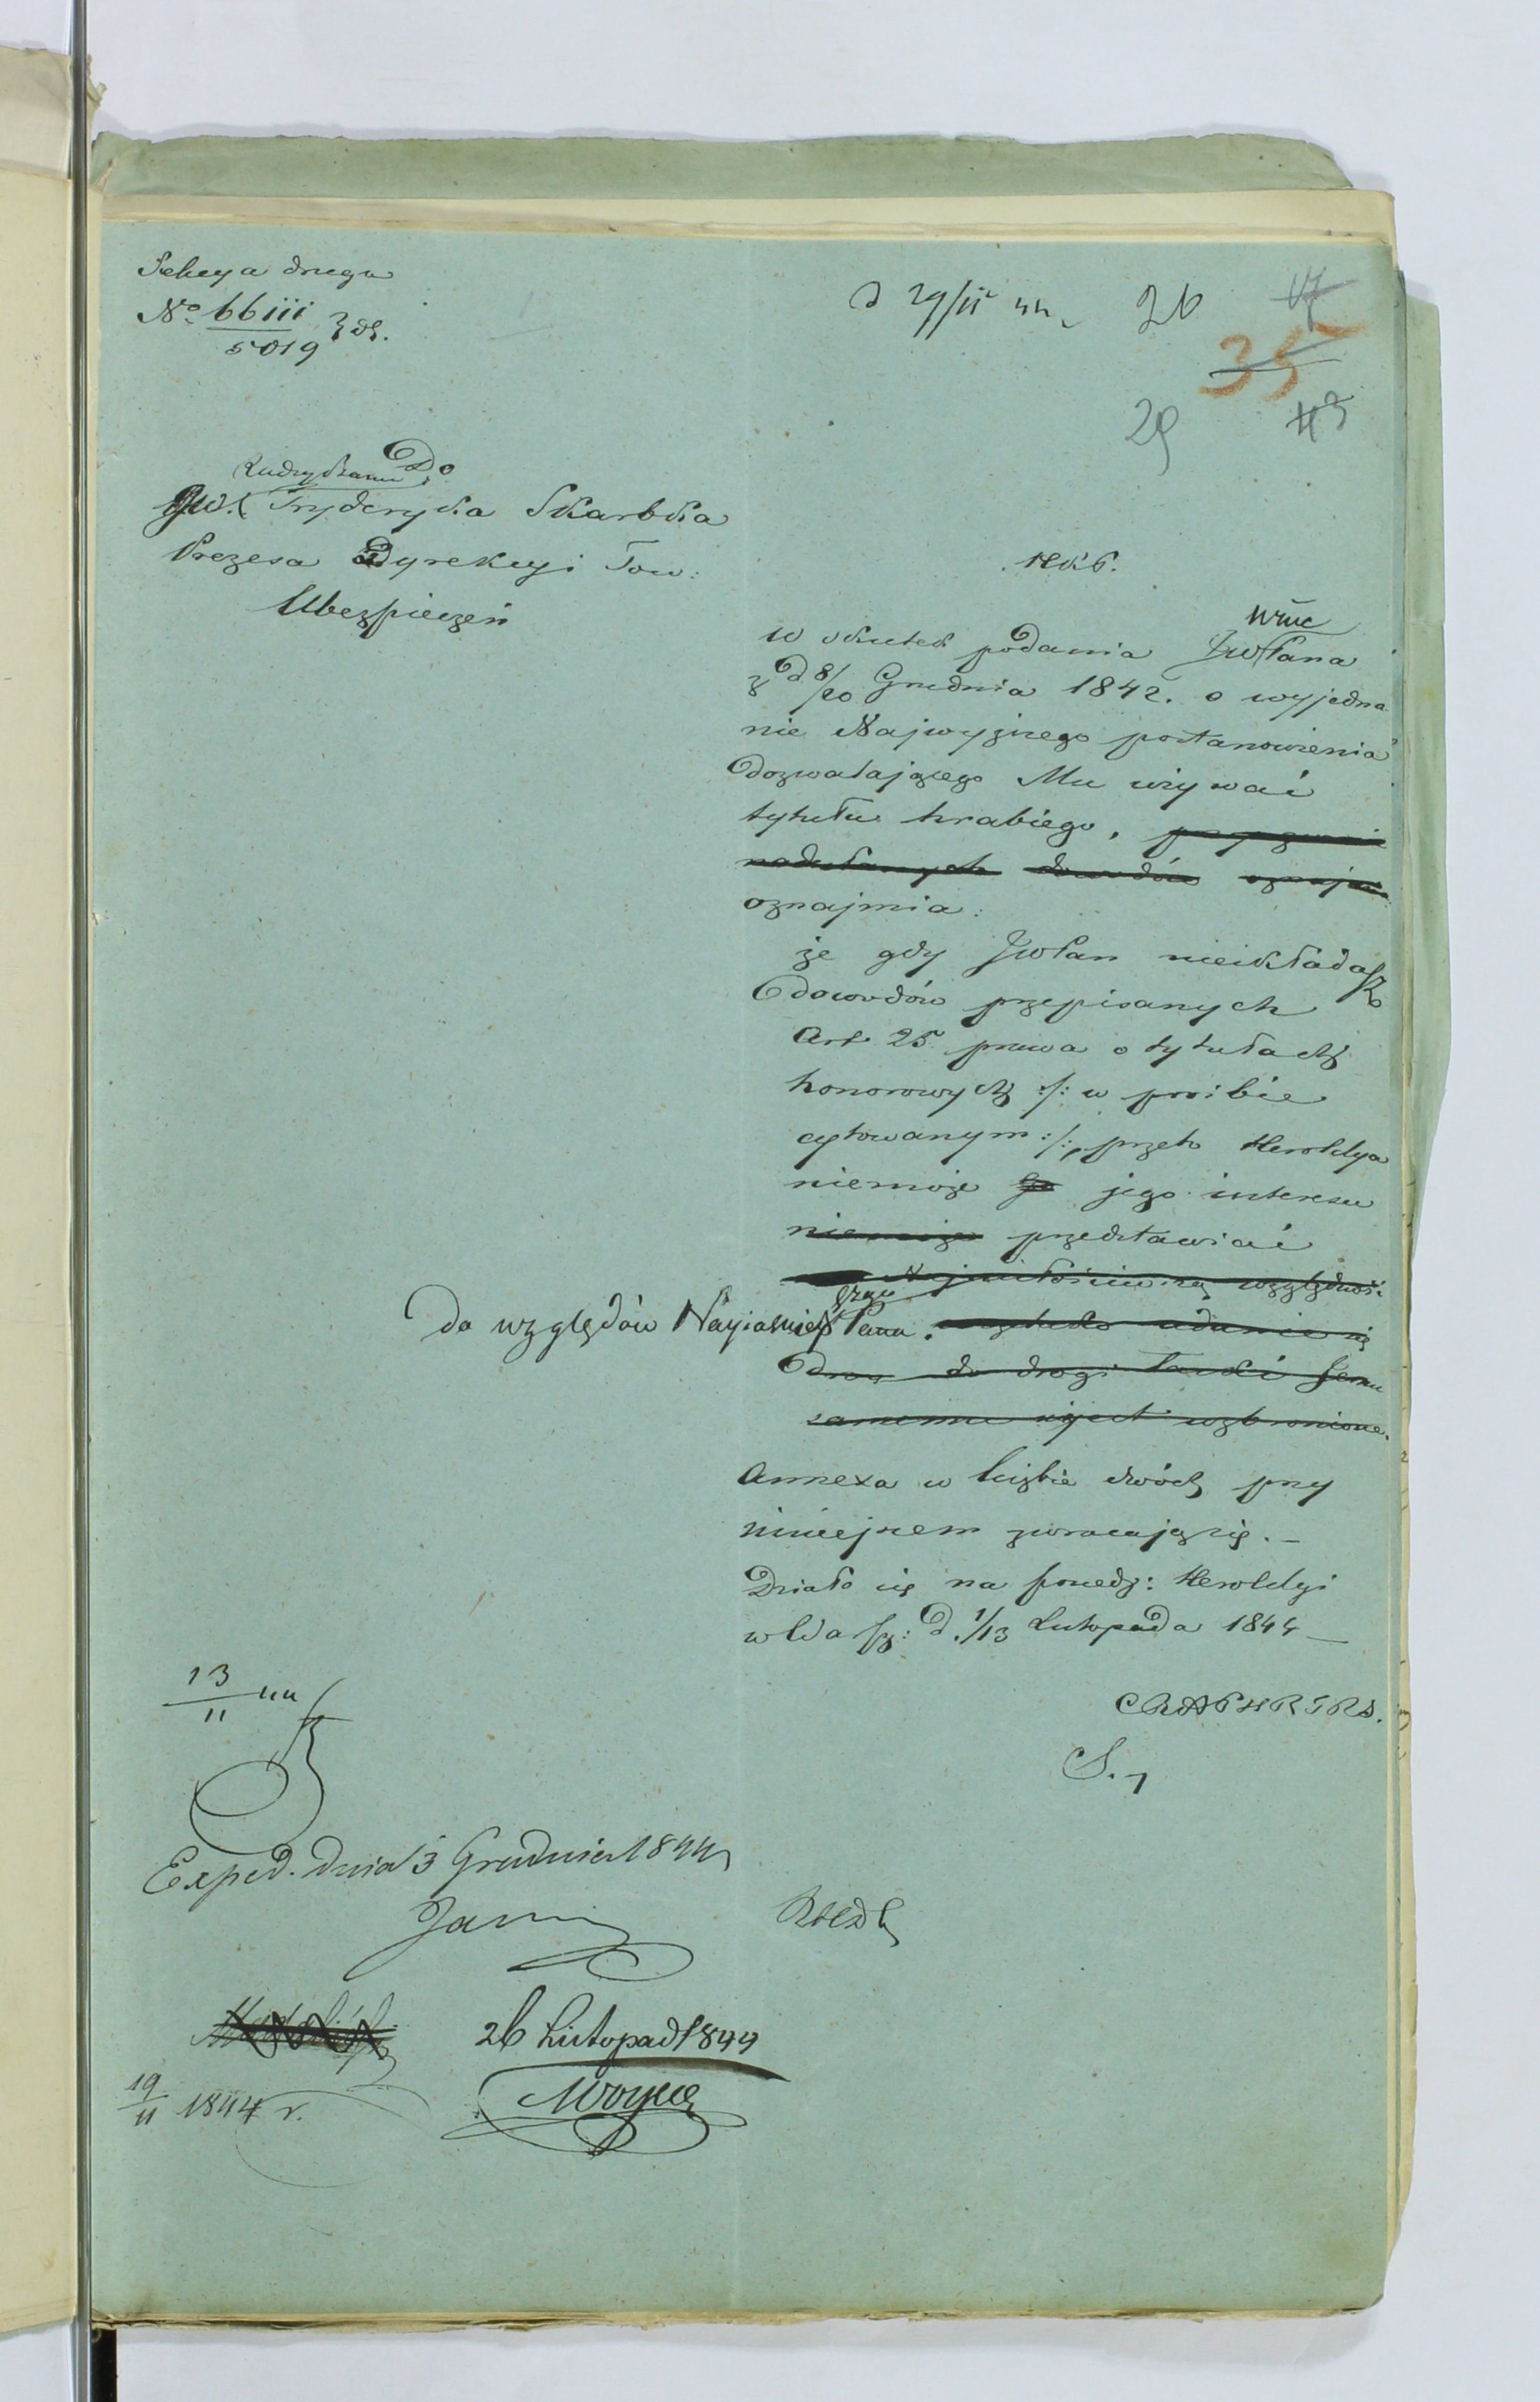 Sekcya druga
No 66111
5019
d 29/11 44
26
17
35
29
43
Do
JW. Fryderyka Skarbka
Prezesa Dyrekcyi Tow:
Ubezpieczeń
HKP.
w skutek podania JWPana
z d 8/20 Grudnia 1842. o wyjedna
nie Najwyższego postanowienia
dozwalającego Mu używać
tytułu hrabiego,
nadesłanych dowodów
oznajmia:
że gdy JWPan nieskłada
dowodów przepisanych
Art 25 prawa o tytułach
honorowych :/: w prośbie
cytowanym :/:, przeto Heroldya
niemoże jego interesu
niemoże przedstawiać
Do względów Najjaśniejszego Pana.
do drogi łaski
samemu wzbronione.
Annexa w liczbie dwóch przy
niniejszem zwracają się. —
Działo się na posiedz: Heroldyi
w Warsz: d. 1/13 Listopada 1844 —
13/11 44
S.
Exped. dnia 3 Grudnia 1844
26 Listopad 1844
19/11 1844 r.